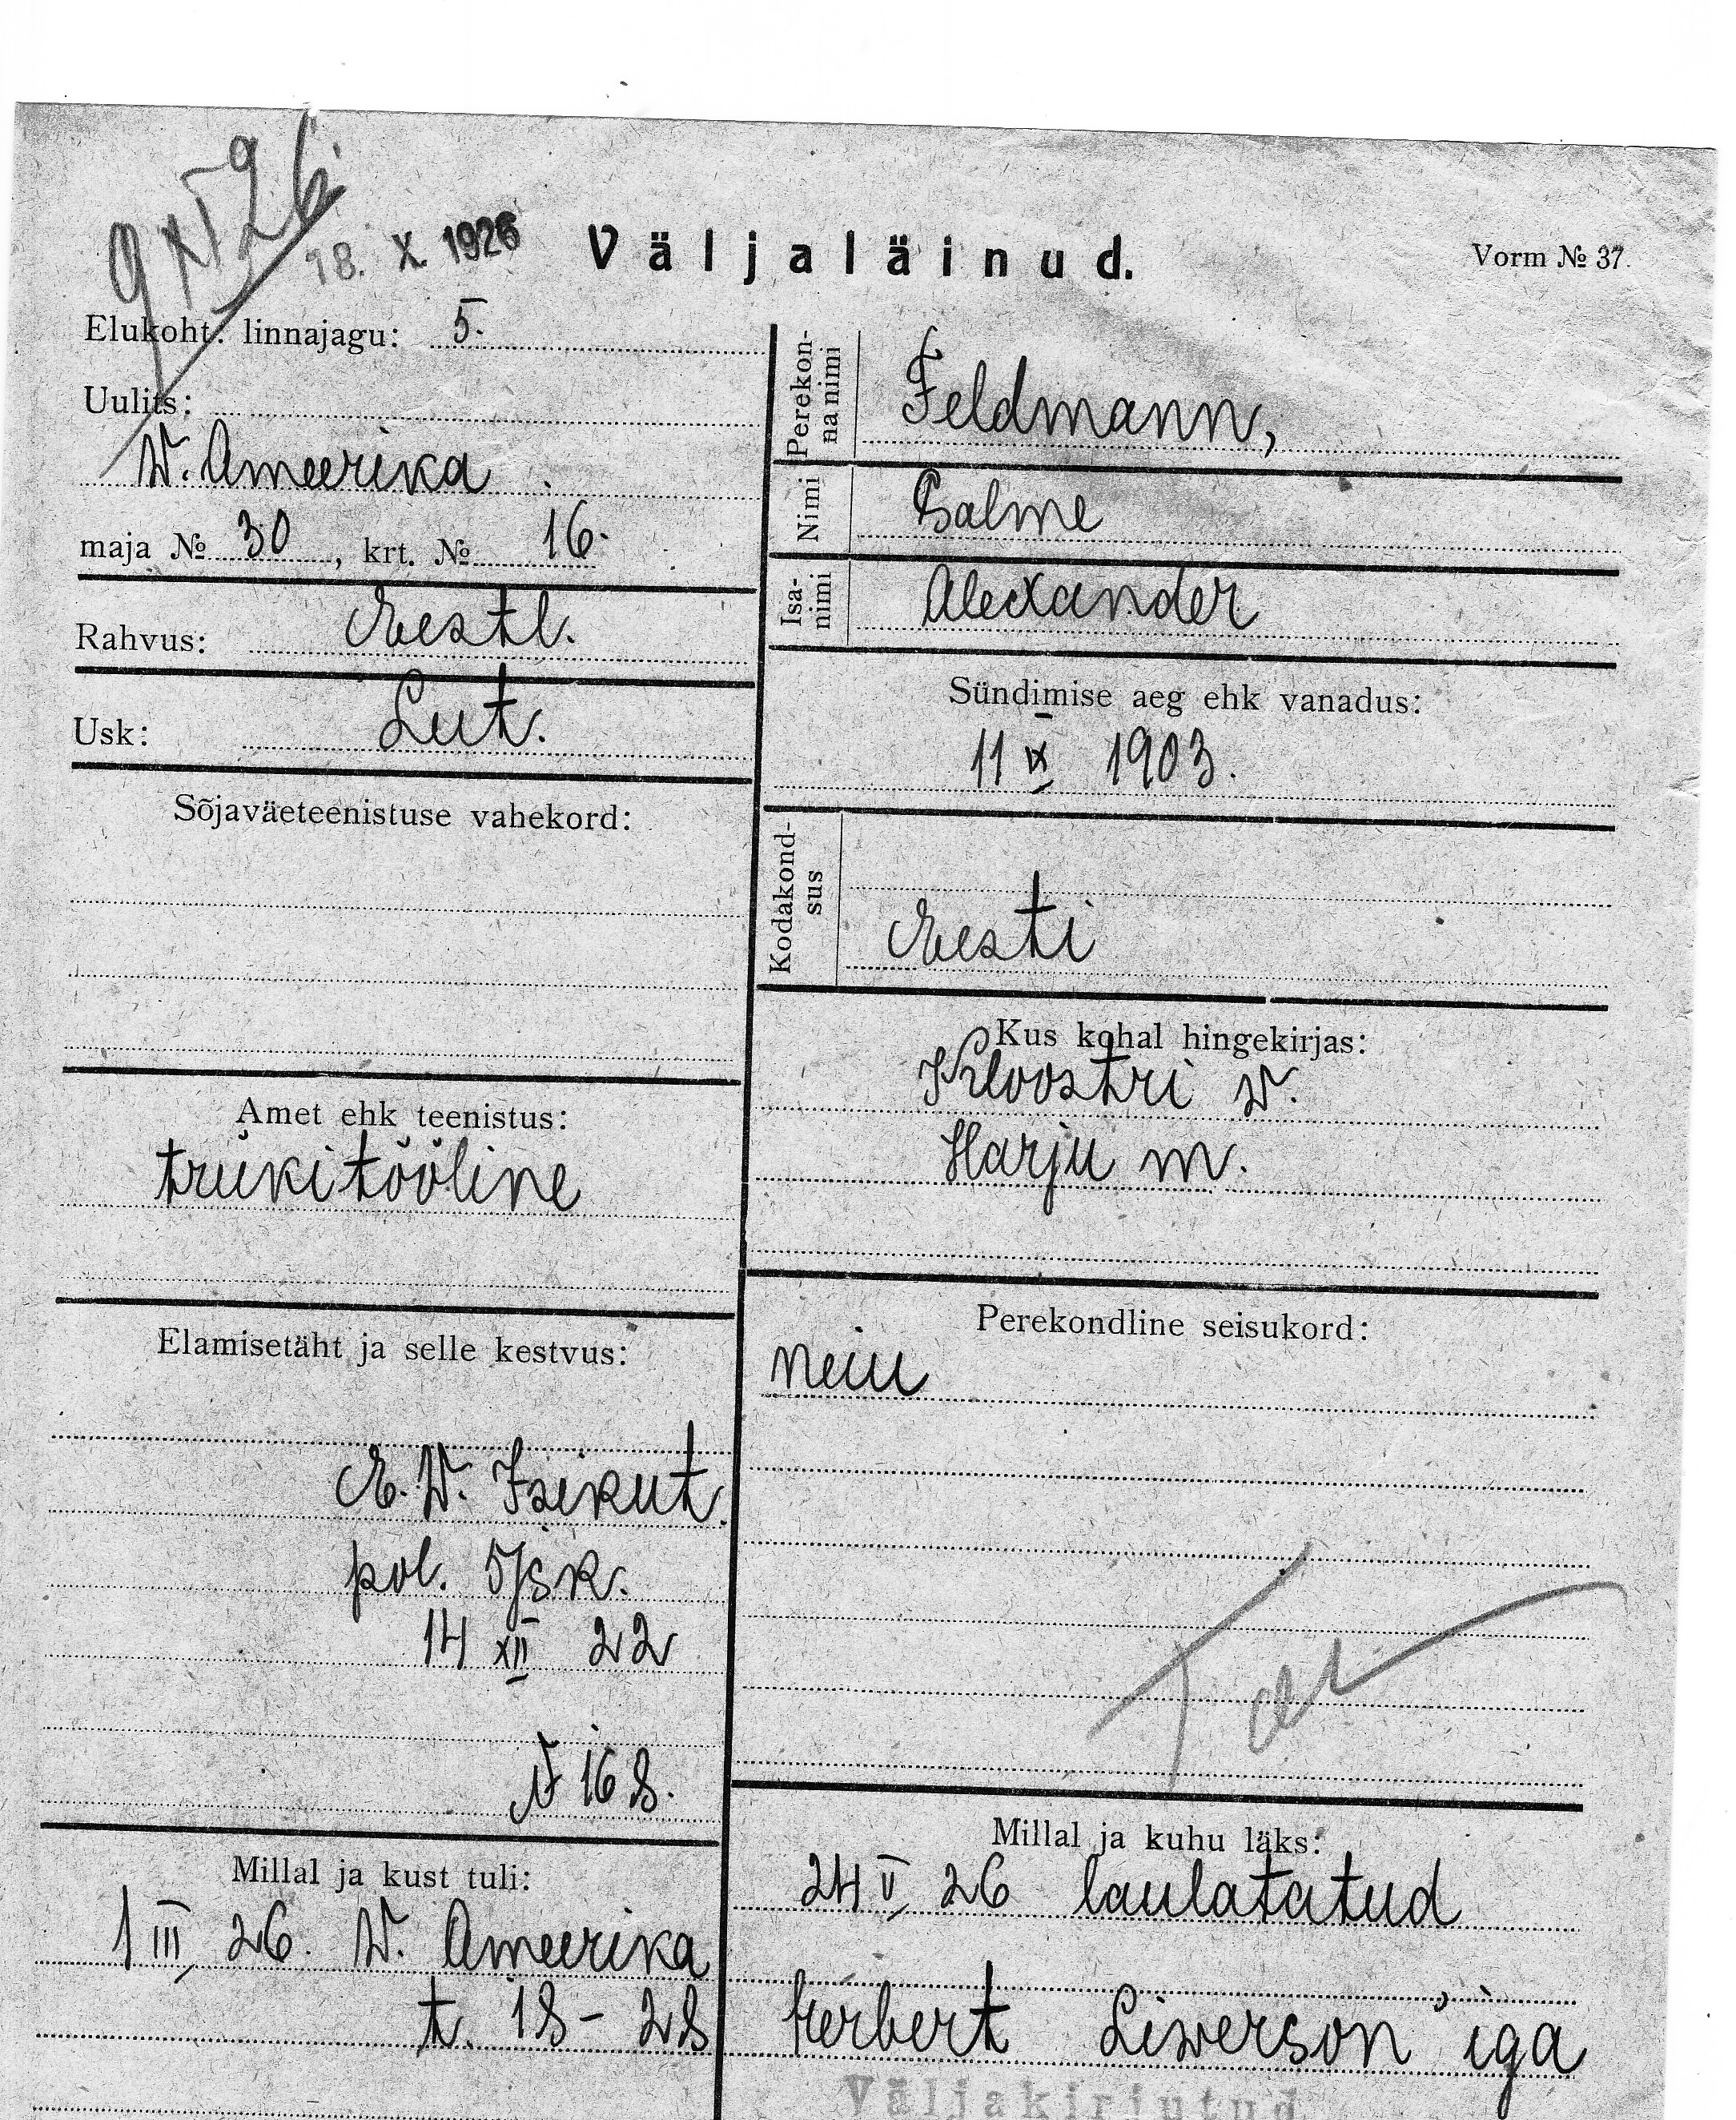 18. X 1926
Väljaläinud.
Vorm № 37.
Elukoht: linnajagu: 5.
Uulits:
W. Ameerika
maja № 30, krt. № 16.
Rahvus: Eestl.
Usk: Lut.
Sõjaväeteenistuse vahekord:
Amet ehk teenistus:
trükitööline
Elamisetäht ja selle kestvus:
E. W. Isikut.
pol. 5 jsk.
14 XII 22
№ 168.
Millal ja kust tuli:
1 III 26. W. Ameerika
t. 18 - 28
Perekon-
na nimi
Feldmann,
Nimi Salme
Isa-
nimi
Alexander
Sündimise aeg ehk vanadus:
11 IX 1903.
Kodakond-
sus
Eesti
Kus kohal hingekirjas:
Kloostri w.
Harju m.
Perekondline seisukord:
neiu
Millal ja kuhu läks:
24 V 26 laulatatud
Herbert Liwerson'iga
Väljakirjutud